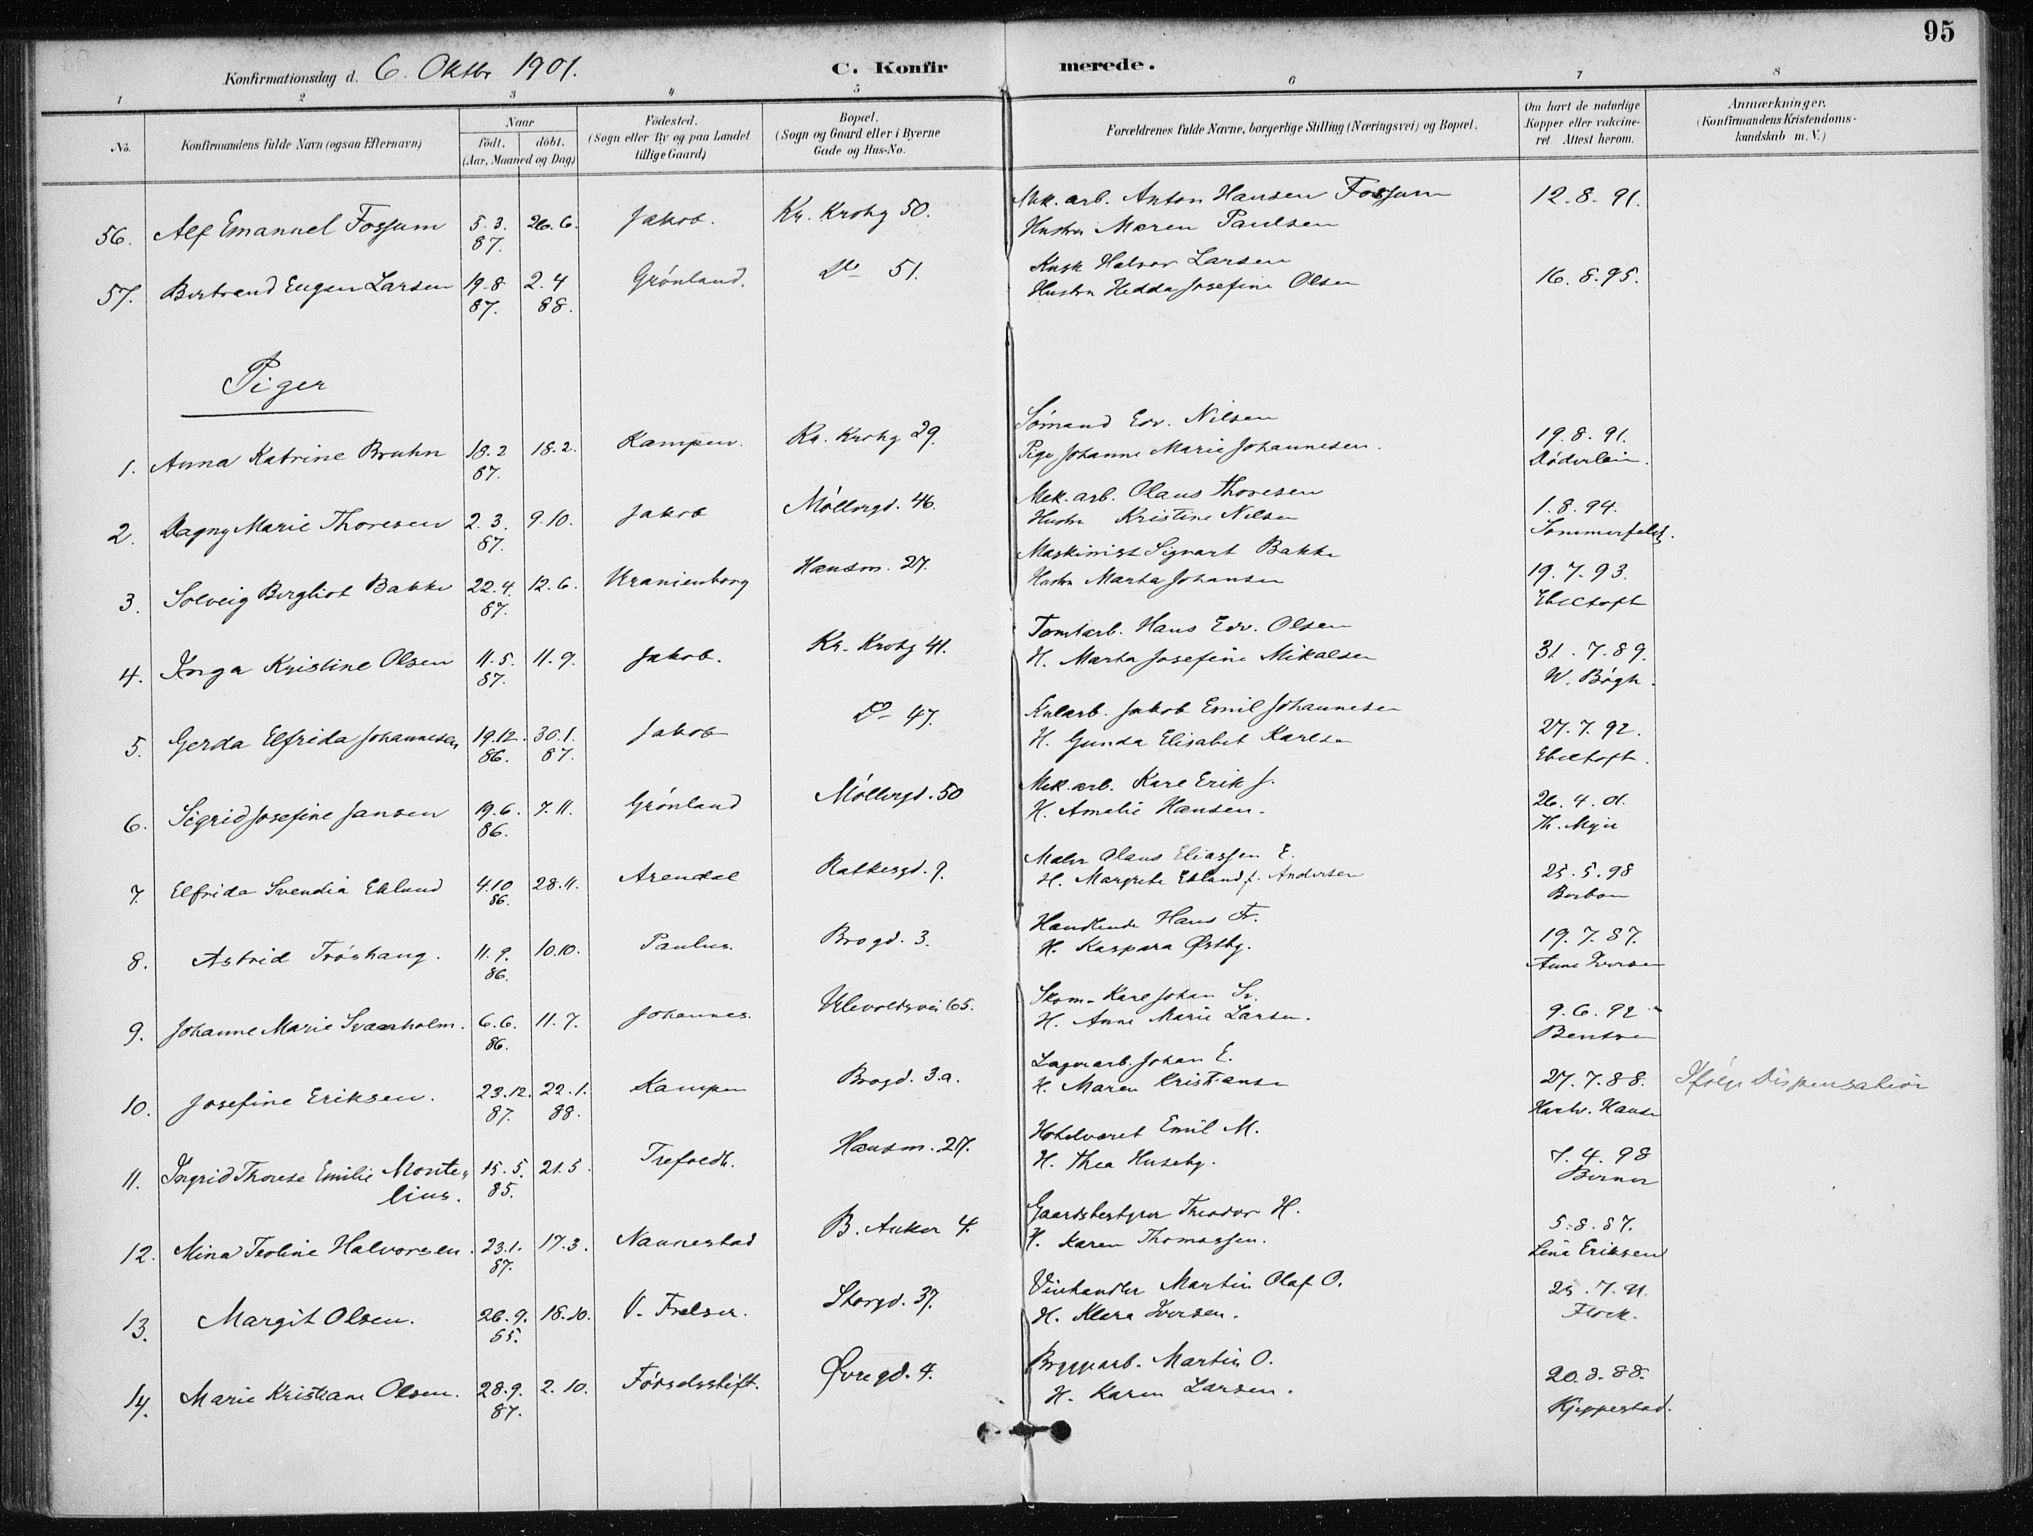 95
Konfirmationsdag d. 6. Oktbr 1901.
C. Konfirmerede.
1 2 3 4 5 6 7 8
No. Konfirmandens fulde Navn (ogsaa Efternavn) Naar født. døbt. (Aar, Maaned og Dag) Fødested. (Sogn eller By og paa Landet tillige Gaard) Bopæl. (Sogn og Gaard eller i Byerne Gade og Hus-No. Forældrenes fulde Navne, borgerlige Stilling (Næringsvei) og Bopæl. Om havt de naturlige Kopper eller vaccineret. Attest herom. Anmærkninger. (Konfirmandens Kristendomskundskab m. V.)
56. Alf Emanuel Fossum 5.3. 87. 26.6. Jakob. Kr. Krohg 50. Mek. arb. Anton Hansen Fossum 12.8.91.
Hustru Maren Paulsen
57. Bertrand Eugen Larsen 19.8 87. 2.4 88. Grønland. Do 51. Kusk Halvor Larsen 16.8.95.
Hustru Hedda Josefine Olsen
Piger
1. Anna Katrine Bruhn 18.2 87. 18.2. Kampen. Kr. Krohg 29. Sømand Edv. Nilsen 19.8.91.
Pige Johanne Marie Johannesen. Døderlein.
2. Dagny Marie Thoresen 2.3. 87. 9.10. Jakob Møllergd. 46. Mek. arb. Olaus Thoresen 1.8.94.
Hustru Kristine Nilsen Sommerfeldt.
3. Solveig Bergliot Bakke 22.4. 87. 12.6. Uranienborg Hausm. 27. Maskinist Sigvart Bakke 19.7.93.
Hustru Marta Johansen Ebeltoft
4. Inga Kristine Olsen 11.5. 87. 11.9. Jakob. Kr. Krohg 41. Tomtarb. Hans Edv. Olsen 31.7.89.
H. Marta Josefine Mikalsen W. Bøgh.
5. Gerda Elfrida Johannesen 19.12. 86. 30.1. 87. Jakob Do 47. Kularb. Jakob Emil Johannesen 27.7.92.
H. Gunda Elisabet Karlsen Ebeltoft.
6. Sigrid Josefine Jansen 19.6. 86. 7.11. Grønland Møllergd. 50 Mek. arb. Karl Erik J. 26.4.01.
H. Amalie Hansen. Th.
7. Elfrida Svendia Eklund 4.10 86. 28.11. Arendal Ratkesgd. 9. Maler Olaus Eliassen E. 25.5.98
H. Margrete Eklund f. Andersen
8. Astrid Trøshaug. 11.9. 86. 10.10. Paulus. Brogd. 3. Handlende Hans Tr. 19.7.87.
H. Kaspara Østby. Anne Iversen
9. Johanne Marie Svanholm. 6.6. 86. 11.7. Johannes. Ullevoldsvei 65. Skom. Karl Johan Sv. 9.6.92
H. Anne Marie Larsen. Bentsen
10. Josefine Eriksen. 23.12. 87. 22.1. 88. Kampen Brogd. 3.a. Lagerarb. Johan E. 27.7.88. Ifølge Dispensation
H. Maren Kristiansen Hansen
11. Ingrid Therese Emilie Montelius. 15.5. 85. 21.5. Trefoldh. Hausm. 27. Hotelværet Emil M. 7.4.98
H. Thea Huseby. Berner
12. Mina Teoline Halvorsen. 23.1. 87. 17.3. Nannestad B. Anker 4. Gaardsbestyrer Theodor H. 5.8.87.
H. Karen Thomassen. Lena Eriksen
13. Margit Olsen. 26.9. 85. 18.10. V. Frelser. Storgd. 37. Vinhandler Martin Olaf O. 25.7.91.
H. Klara Iversen. Flock.
14. Marie Kristiane Olsen. 28.9. 87. 2.10. Fødselsstift. Øvregd. 4. Bryggarb. Martin O. 20.8.88.
H. Karen Larsen. Kjeppestad.